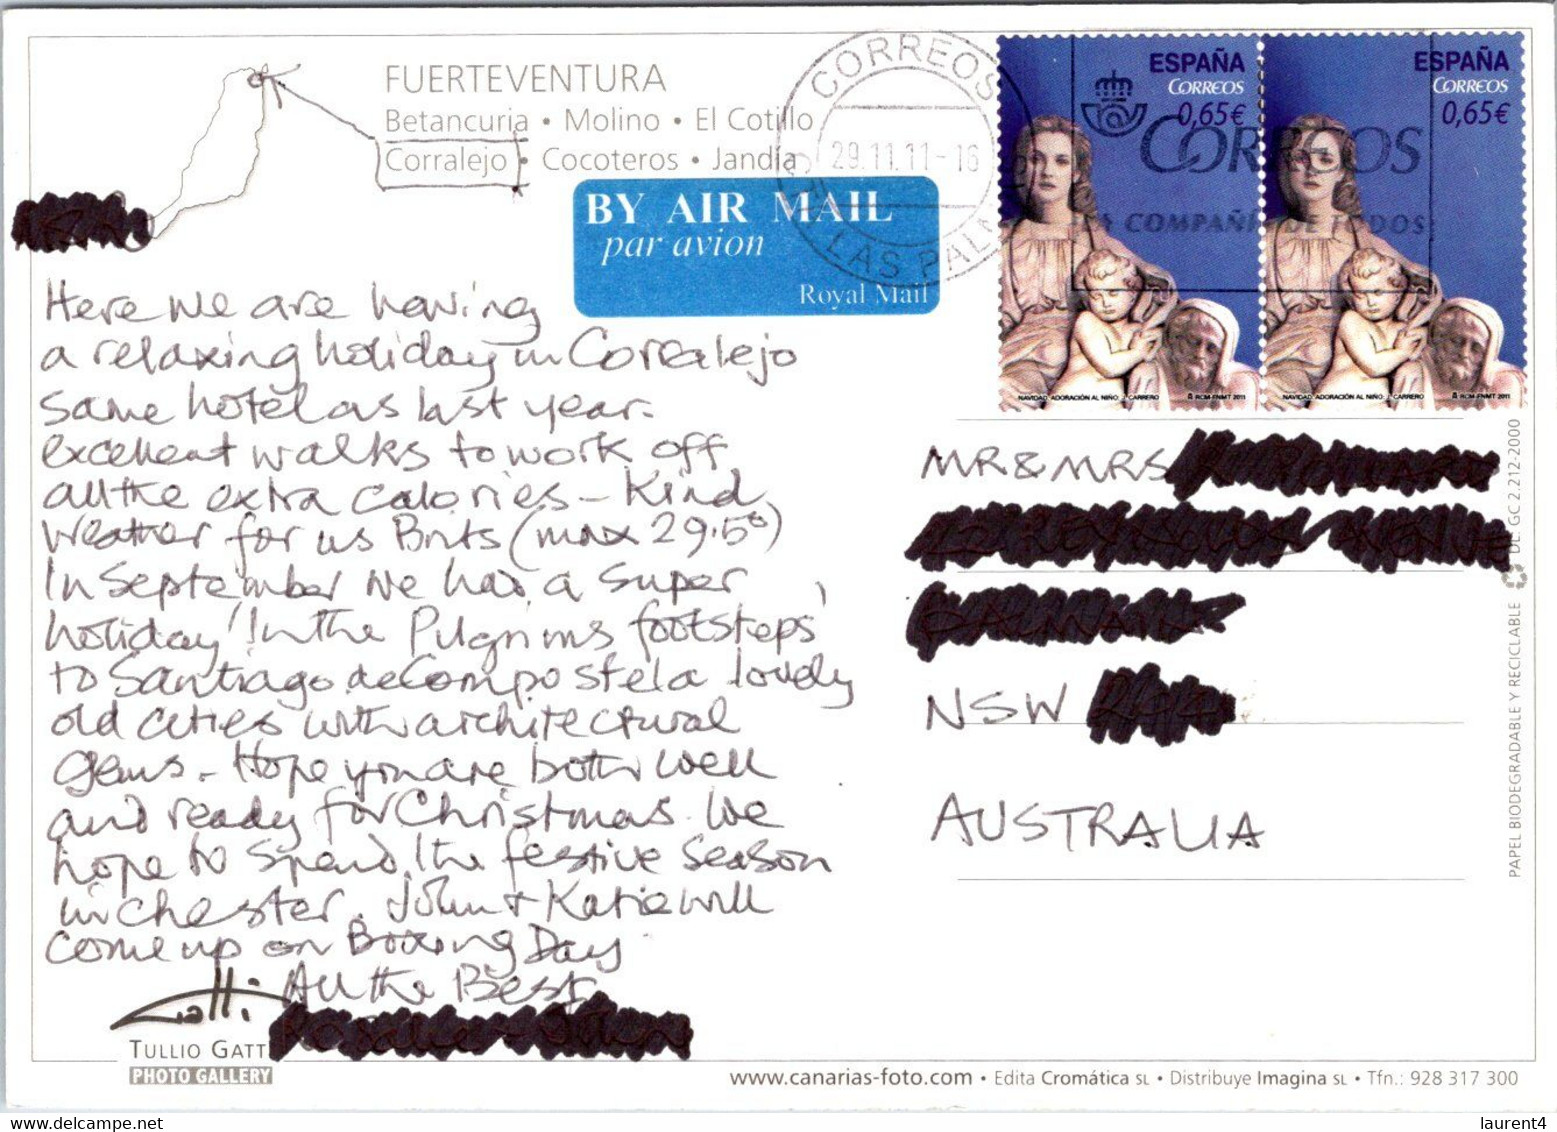 FUERTEVENTURA
Betancuria • Molino • El Cotillo
Corralejo • Cocoteros • Jandía
CORREOS
29.11.11-16
LAS PALMAS
BY AIR MAIL
par avion
Royal Mail
ESPAÑA
CORREOS
0,65€
NAVIDAD. ADORACIÓN AL NIÑO. J. CARRERO
RCM-FNMT 2011
ESPAÑA
CORREOS
0,65€
NAVIDAD. ADORACIÓN AL NIÑO. J. CARRERO
RCM-FNMT 2011
CORREOS
LA COMPAÑÍA DE TODOS
Here we are having
a relaxing holiday in Corralejo
same hotel as last year.
excellent walks to work off
all the extra calories - Kind
weather for us Brits (max 29.5°)
In September we had a super
holiday 'In the Pilgrims footsteps'
to Santiago de Compostela lovely
old cities with architectural
gems. Hope you are both well
and ready for Christmas. We
hope to spend the festive season
in Chester. John + Katie will
come up on Boxing Day.
All the Best
MR & MRS
NSW
AUSTRALIA
Gatti
TULLIO GATT
PHOTO GALLERY
www.canarias-foto.com • Edita Cromática SL • Distribuye Imagina SL • Tfn.: 928 317 300
PAPEL BIODEGRADABLE Y RECICLABLE DL: GC 2.212-2000
laurent4